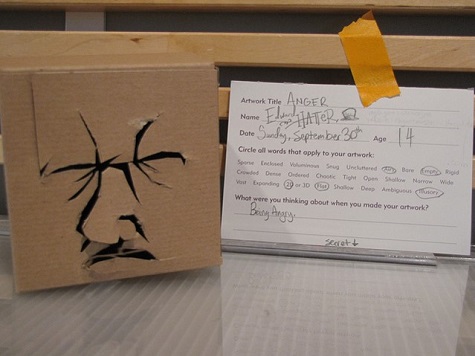 Artwork Title ANGER
Name Edward HATER
Date Sunday, September 30th Age 14
Circle all words that apply to your artwork:
Sparse Enclosed Voluminous Snug Uncluttered Bare Empty Rigid
Crowded Dense Ordered Chaotic Tight Open Shallow Narrow Wide
Vast Expanding 2D or 3D Flat Shallow Deep Ambiguous Illusory
What were you thinking about when you made your artwork?
Being Angry.
secret ↓